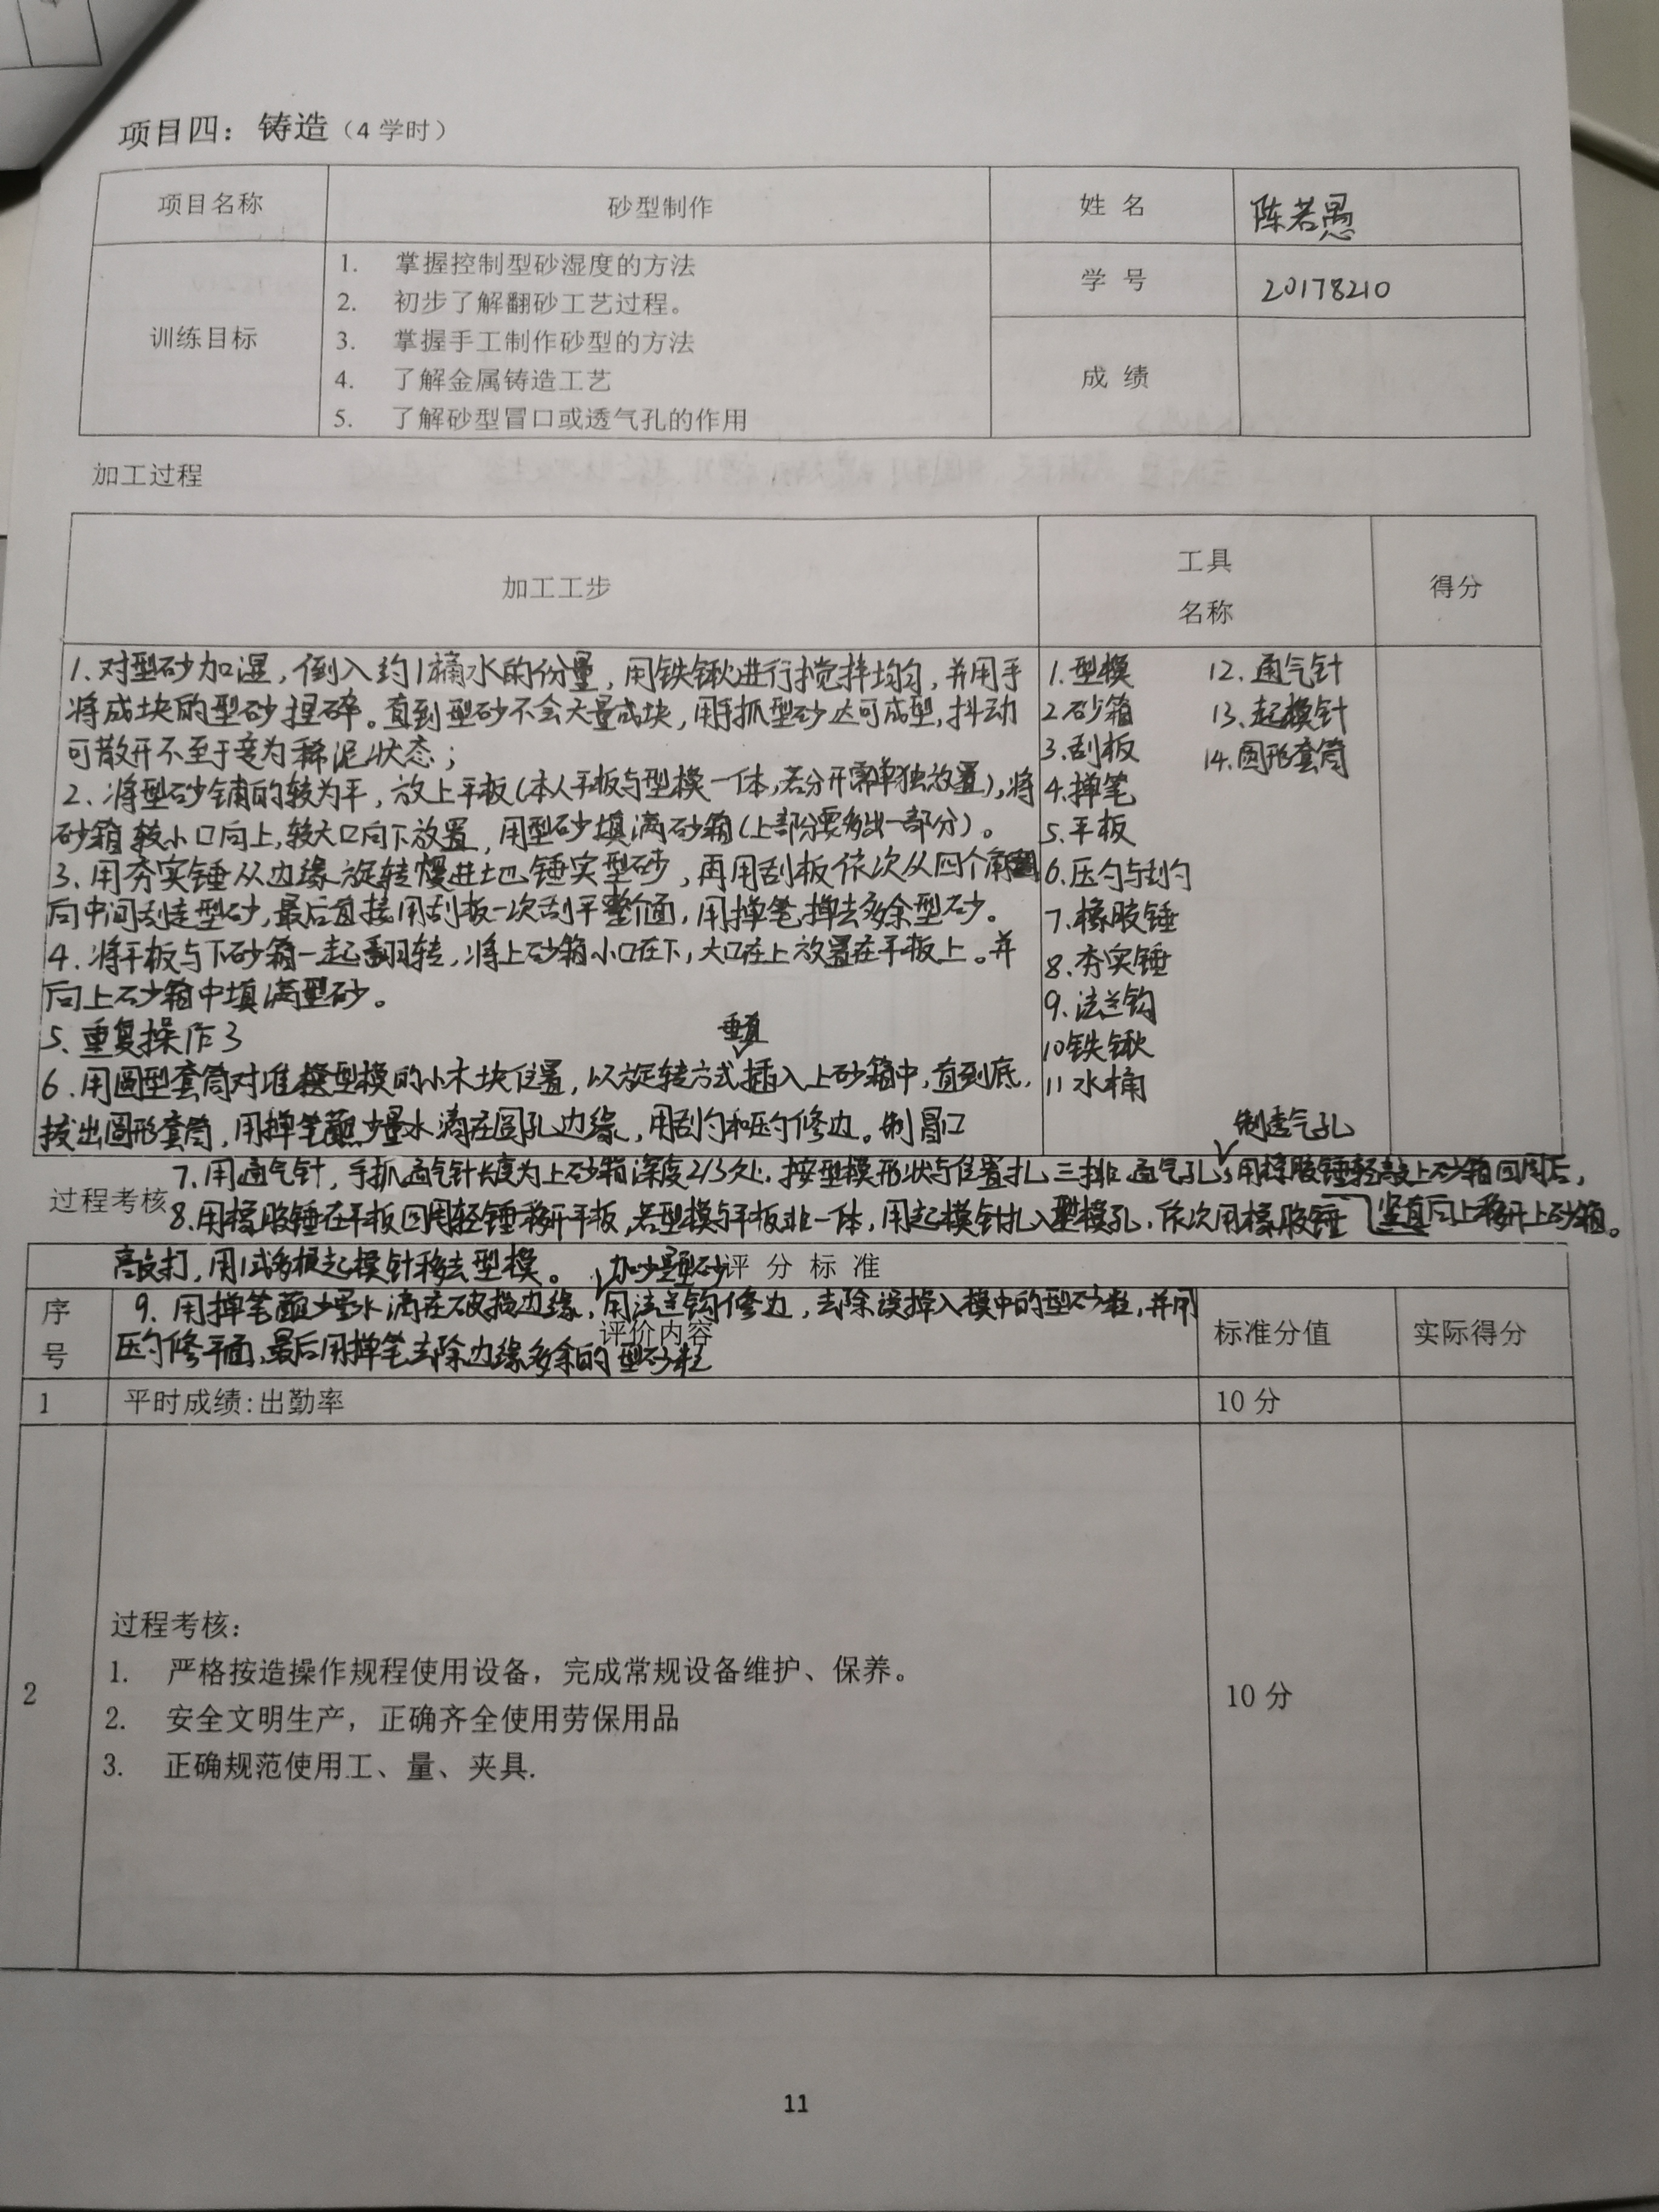 项目四：铸造（4 学时）
项目名称 砂型制作 姓 名 陈若愚
训练目标
1. 掌握控制型砂湿度的方法
2. 初步了解翻砂工艺过程。
3. 掌握手工制作砂型的方法
4. 了解金属铸造工艺
5. 了解砂型冒口或透气孔的作用
学 号 20178210
成 绩
加工过程
加工工步 工具名称 得分
1.对型砂加湿，倒入约1桶水的份量，用铁锹进行搅拌均匀，并用手
将成块的型砂捏碎。直到型砂不会大量成块，用手抓型砂达可成型，抖动
可散开不至于变为稀泥状态；
2、将型砂铺的较为平，放上平板（本人平板与型模一体，若分开需单独放置），将
砂箱较小口向上，较大口向下放置，用型砂填满砂箱（上部分要多出一部分）。
3、用夯实锤从边缘旋转慢进地锤实型砂，再用刮板依次从四个角
向中间刮走型砂，最后直接用刮板一次刮平整个面，用掸笔掸去多余型砂。
4、将平板与下砂箱一起翻转，将上砂箱小口在下，大口在上放置在平板上。并
向上砂箱中填满型砂。
5、重复操作3
垂直
6、用圆型套筒对准型模的小木块位置，以旋转方式插入上砂箱中，直到底，
拔出圆形套筒，用掸笔蘸少量水滴在圆孔边缘，用刮勺和压勺修边。制冒口
1.型模
2.砂箱
3.刮板
4.掸笔
5.平板
6.压勺与刮勺
7.橡胶锤
8.夯实锤
9.法兰钩
10铁锹
11水桶
12.通气针
13.起模针
14.圆形套筒
制透气孔
7、用通气针，手抓通气针长度为上砂箱深度2/3处，按型模形状与位置扎三排通气孔；用橡胶锤轻敲上砂箱四周后，
竖直向上移开上砂箱。
过程考核
8.用橡胶锤在平板四周轻锤移开平板，若型模与平板非一体，用起模针扎入型模孔，依次用橡胶锤
敲打，用1或多根起模针移去型模。
加少量型砂
评 分 标 准
9、用掸笔蘸少量水滴在破损边缘，用法兰钩修边，去除误掉入模中的型砂粒，并用
压勺修平面，最后用掸笔去除边缘多余的型砂粒
序号 评价内容 标准分值 实际得分
1 平时成绩：出勤率 10 分
2 过程考核：
1. 严格按造操作规程使用设备，完成常规设备维护、保养。
2. 安全文明生产，正确齐全使用劳保用品
3. 正确规范使用工、量、夹具.
10 分
11